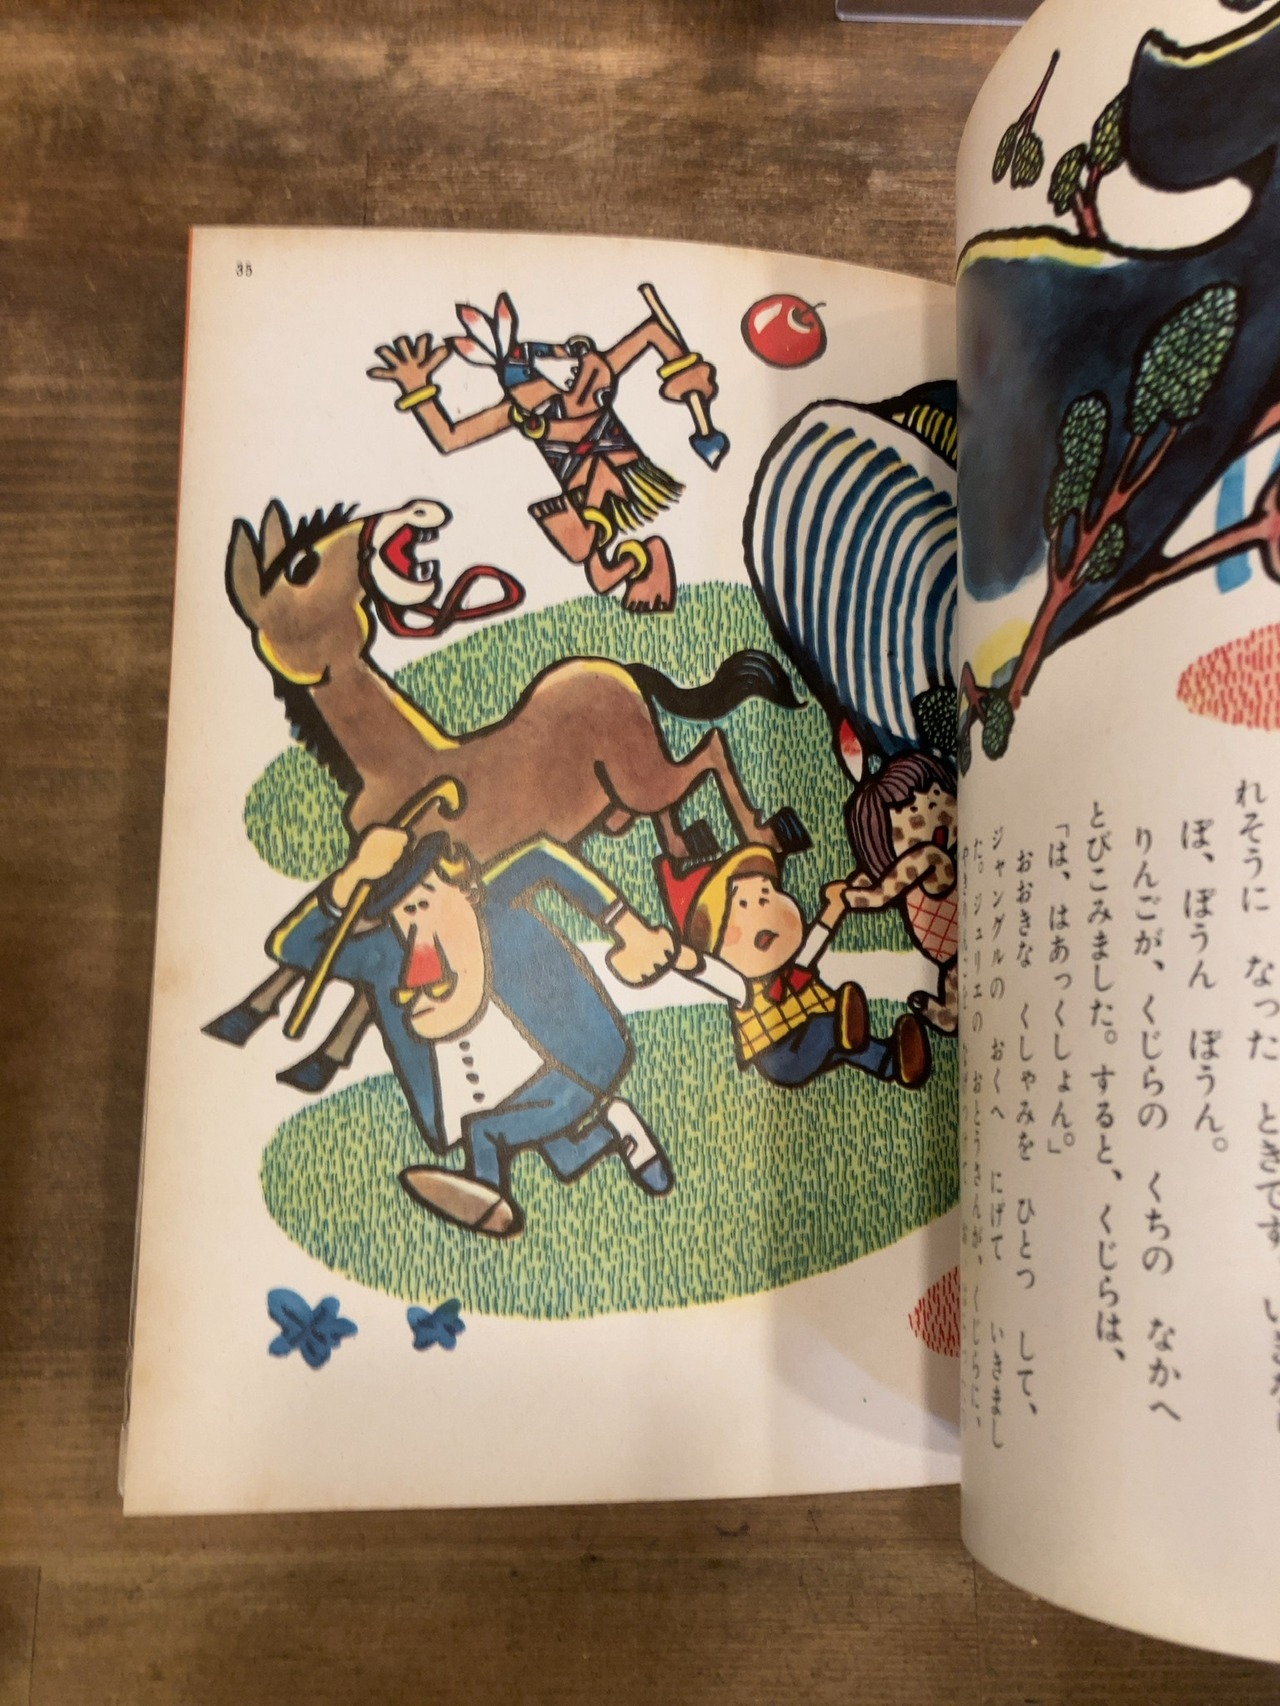 れそうに なった ときです。
ぽ、ぽうん ぽうん。
りんごが、くじらの くちの なかへ
とびこみました。すると、くじらは、
「は、はあっくしょん。」
おおきな くしゃみを ひとつ して、
ジャングルの おくへ にげて いきまし
た。ジュリエの おとうさんが、くじらに、
35